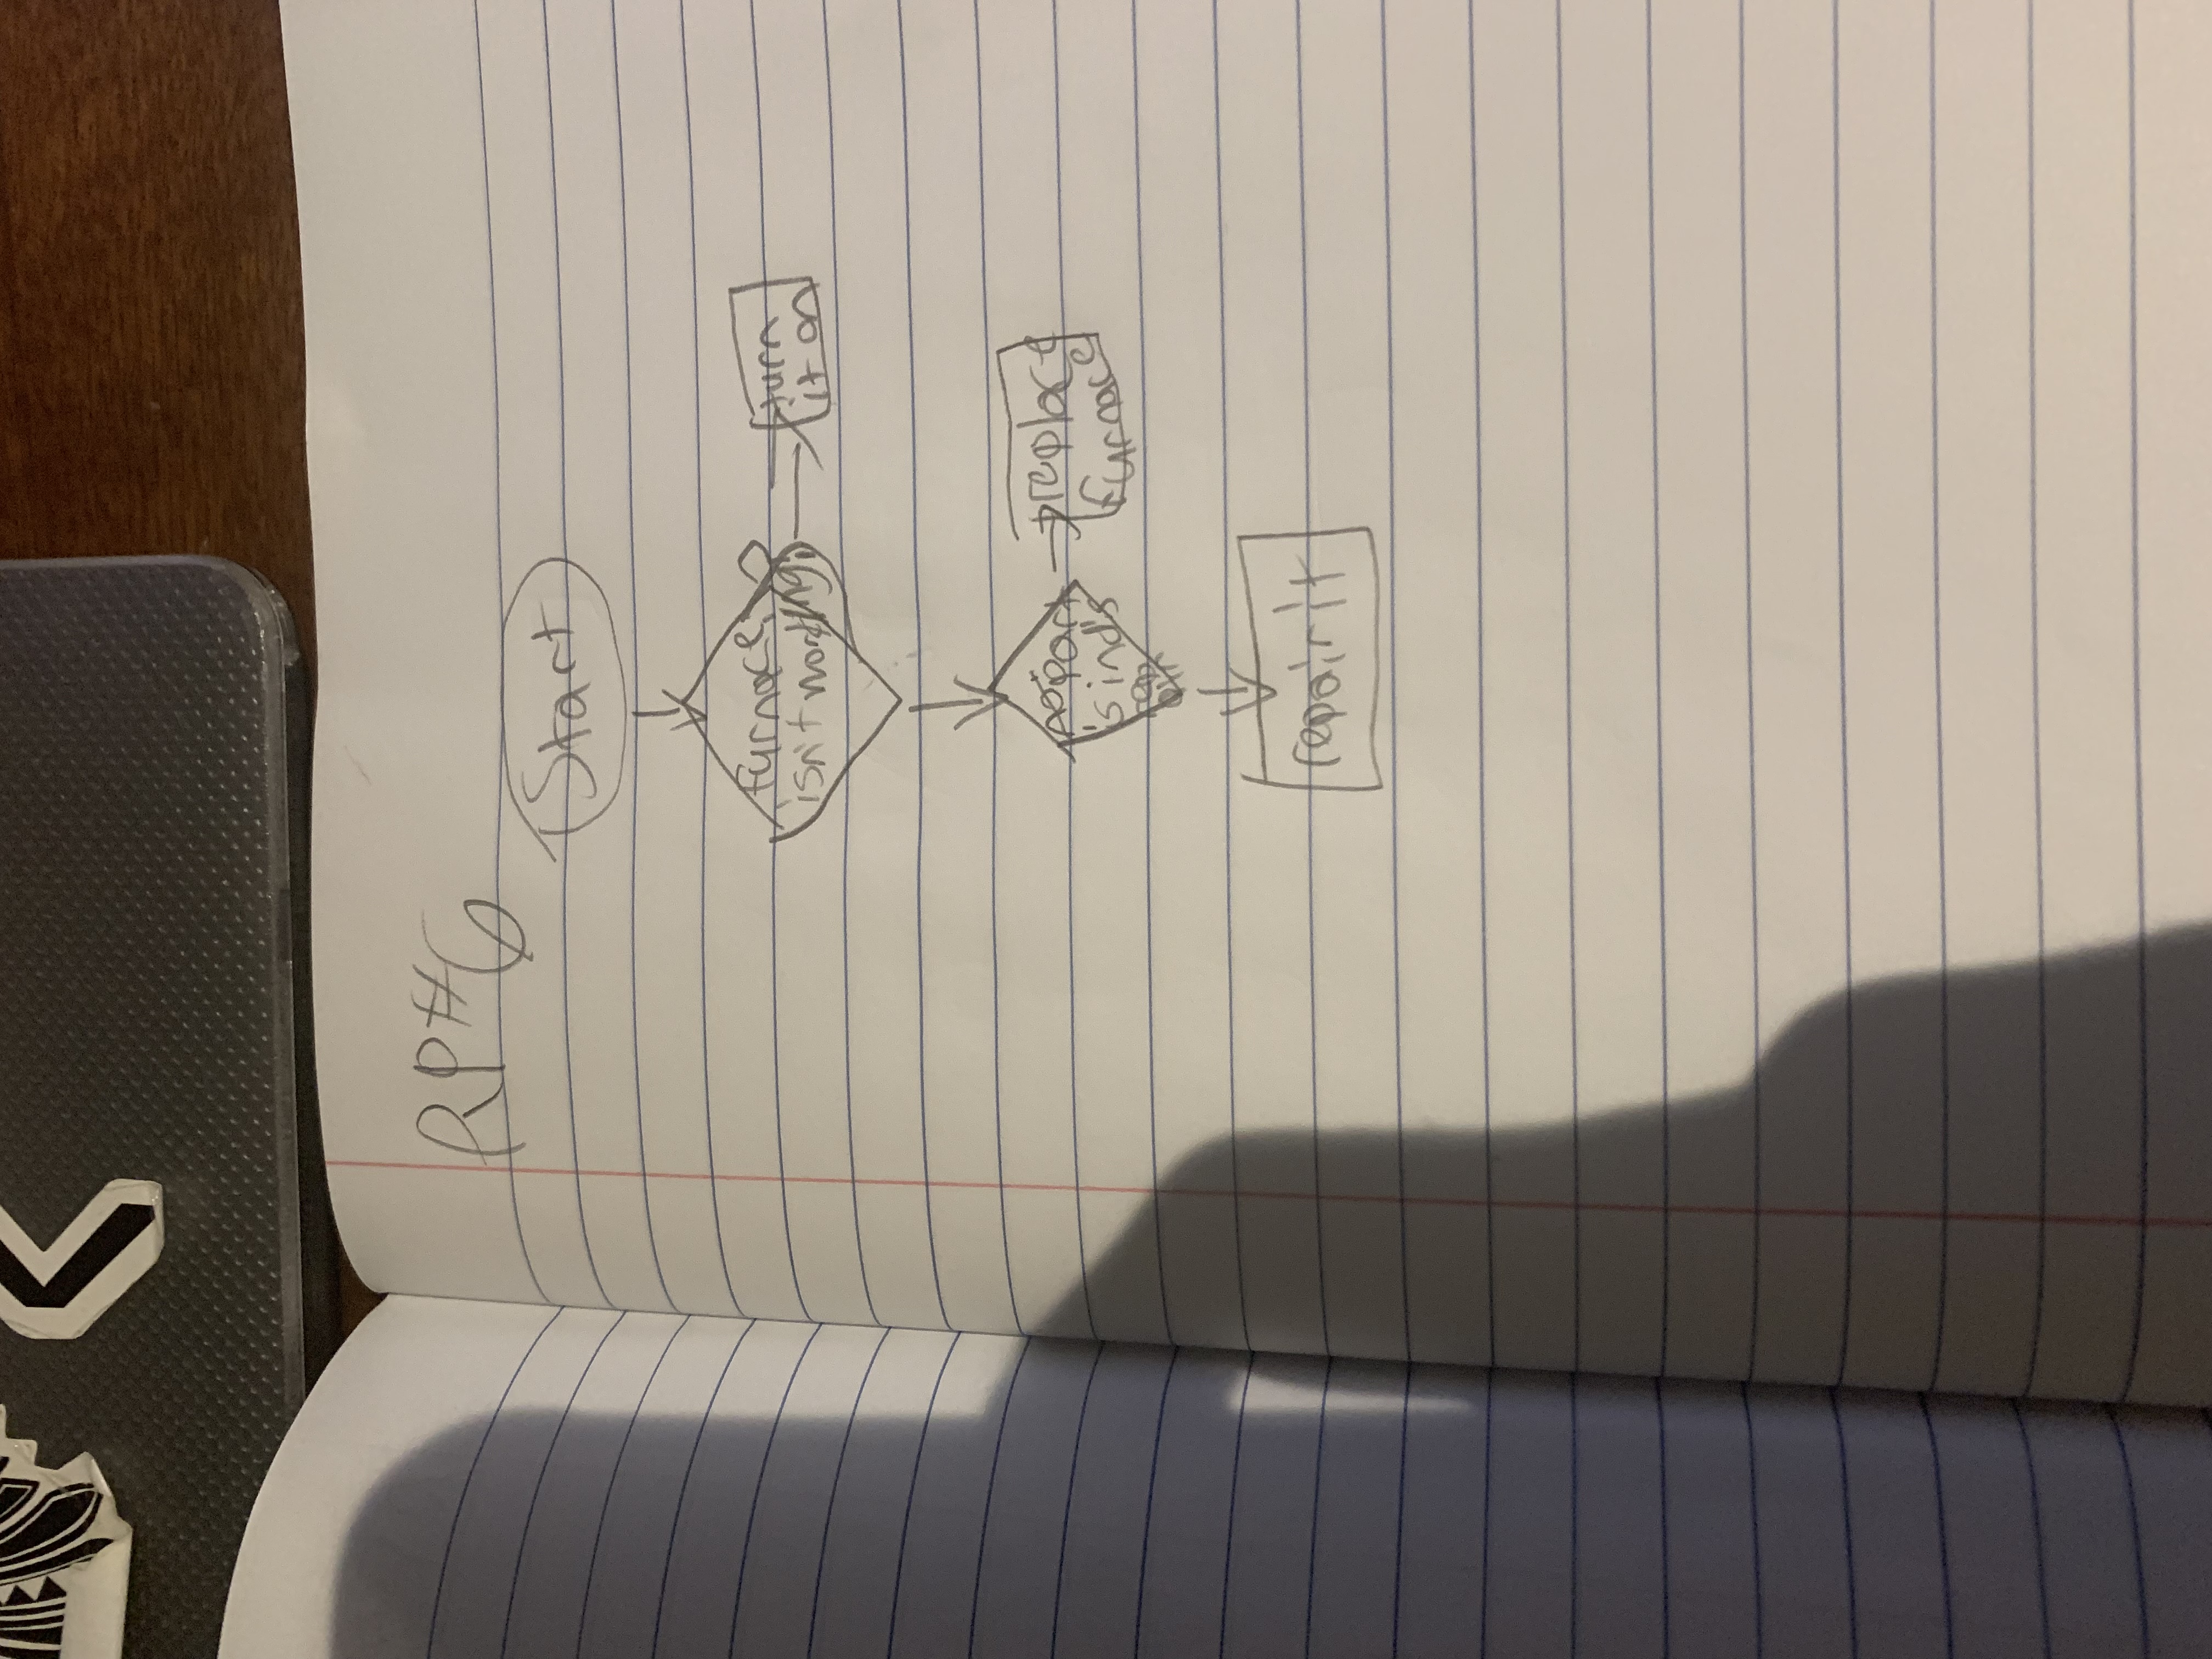 RP#6
Start
furnace
isn't working
turn
it on
part
replace
furnace
repair it